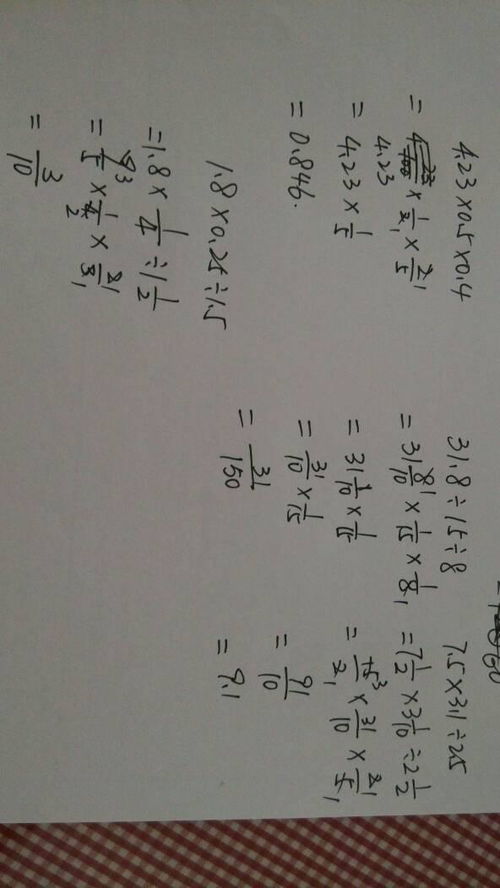 4.23×0.5×0.4
= 4.23 × 1/2 × 2/5
= 4.23 × 1/5
= 0.846.
1.8×0.25÷1.5
=1.8 × 1/4 ÷ 1 1/2
= 9/5 × 1/4 × 2/3
= 3/10
31.8÷15÷8
= 31 8/10 × 1/15 × 1/8
= 31 1/10 × 1/15
= 31/10 × 1/15
= 31/150
7.5×3.1÷25
= 7 1/2 × 3 1/10 ÷ 2 1/2
= 15/2 × 31/10 × 2/5
= 91/10
= 9.1